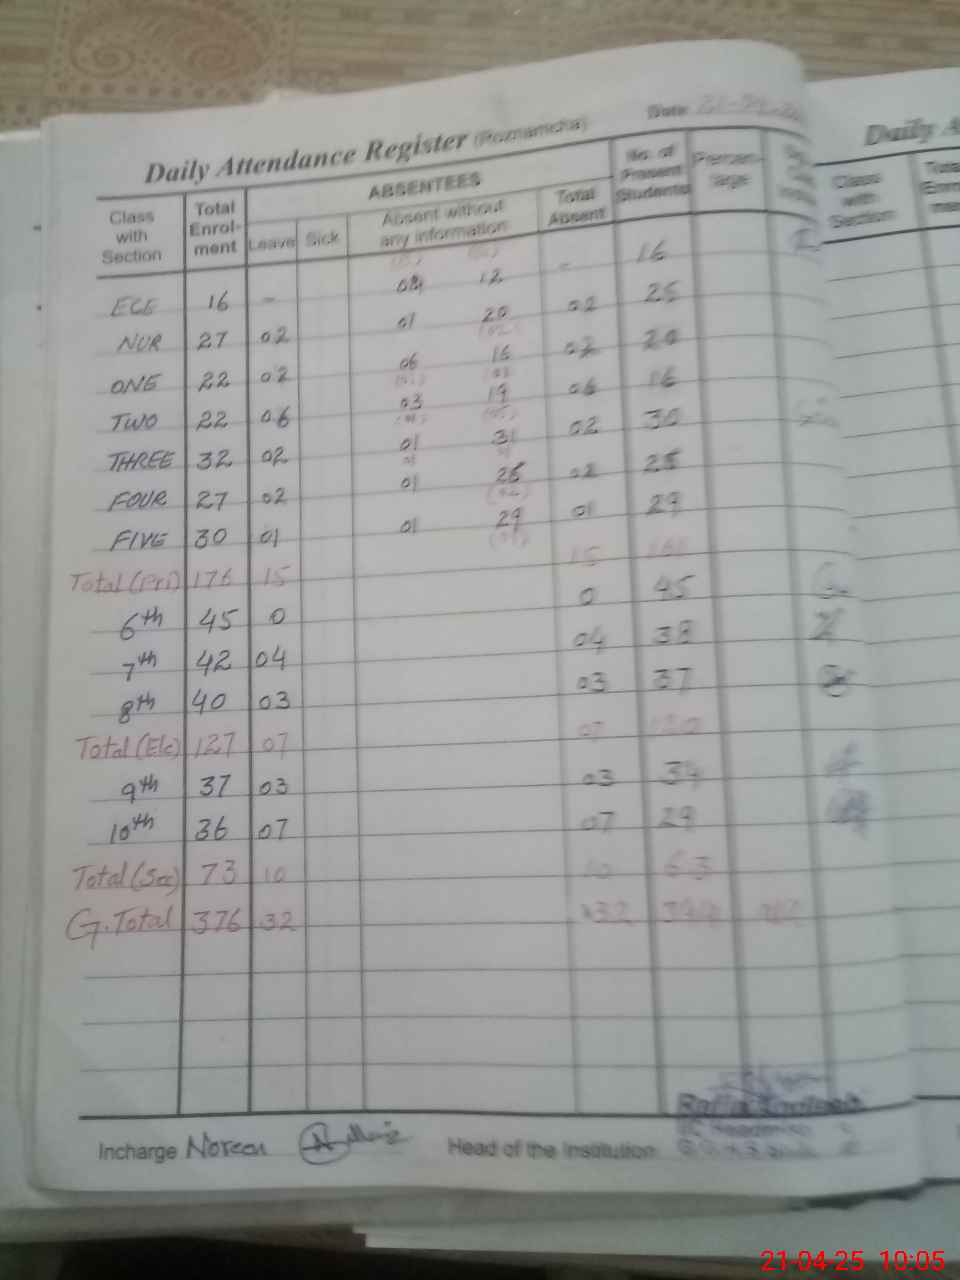 Daily Attendance Register (Roznamcha) Date 21-04-
Daily A
Class with Section Total Enrol-ment ABSENTEES No. of Present Students
Leave Sick Absent without any information Total Absent
Class with Section
ECE 16 - 04 12 - 16
NUR 27 02 01 20 02 25
ONE 22 02 06 16 02 20
TWO 22 06 03 19 06 16
THREE 32 02 01 31 02 30
FOUR 27 02 01 26 02 25
FIVE 30 01 01 29 01 29
Total (Pri) 176 15 15 161
6th 45 0 0 45
7th 42 04 04 38
8th 40 03 03 37
Total (Ele) 127 07 07 120
9th 37 03 03 34
10th 36 07 07 29
Total (Sec) 73 10 10 63
G.Total 376 32 32 344
Incharge Noreen Head of the Institution
21-04-25 10:05